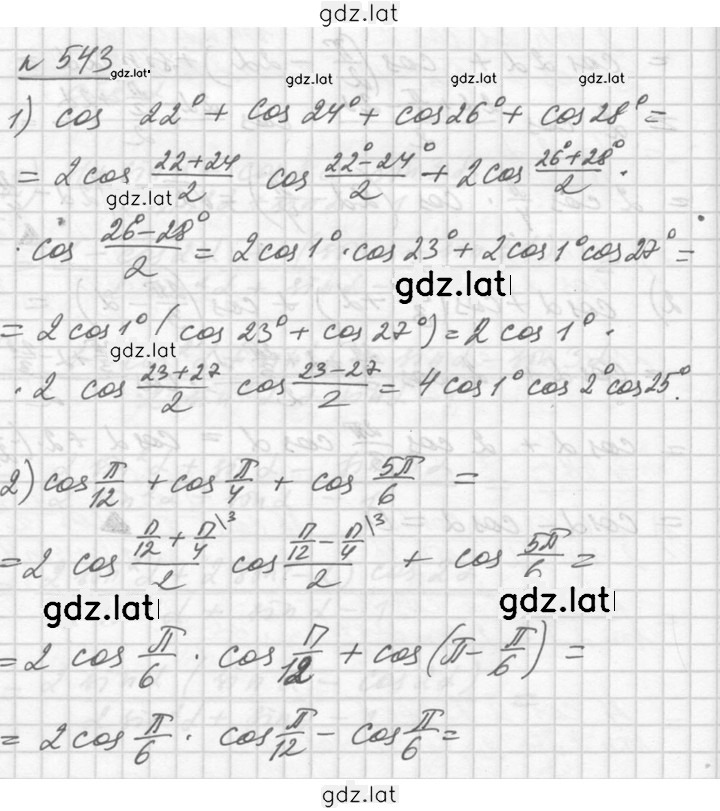 gdz.lat
№ 543 gdz.lat
gdz.lat gdz.lat gdz.lat
1) cos 22° + cos 24° + cos 26° + cos 28° =
= 2 cos (22+24)/2 cos (22°-24°)/2 + 2 cos (26°+28°)/2 ·
gdz.lat
· cos (26°-28°)/2 = 2 cos 1° · cos 23° + 2 cos 1° cos 27° =
gdz.lat
= 2 cos 1° (cos 23° + cos 27°) = 2 cos 1° ·
gdz.lat
· 2 cos (23+27)/2 cos (23-27)/2 = 4 cos 1° cos 2° cos 25°.
2) cos π/12 + cos π/4 + cos 5π/6 =
= 2 cos (π/12 + π/4\3)/2 cos (π/12 - π/4\3)/2 + cos 5π/6 =
gdz.lat gdz.lat
= 2 cos π/6 · cos π/12 + cos (π - π/6) =
= 2 cos π/6 · cos π/12 - cos π/6 =
gdz.lat